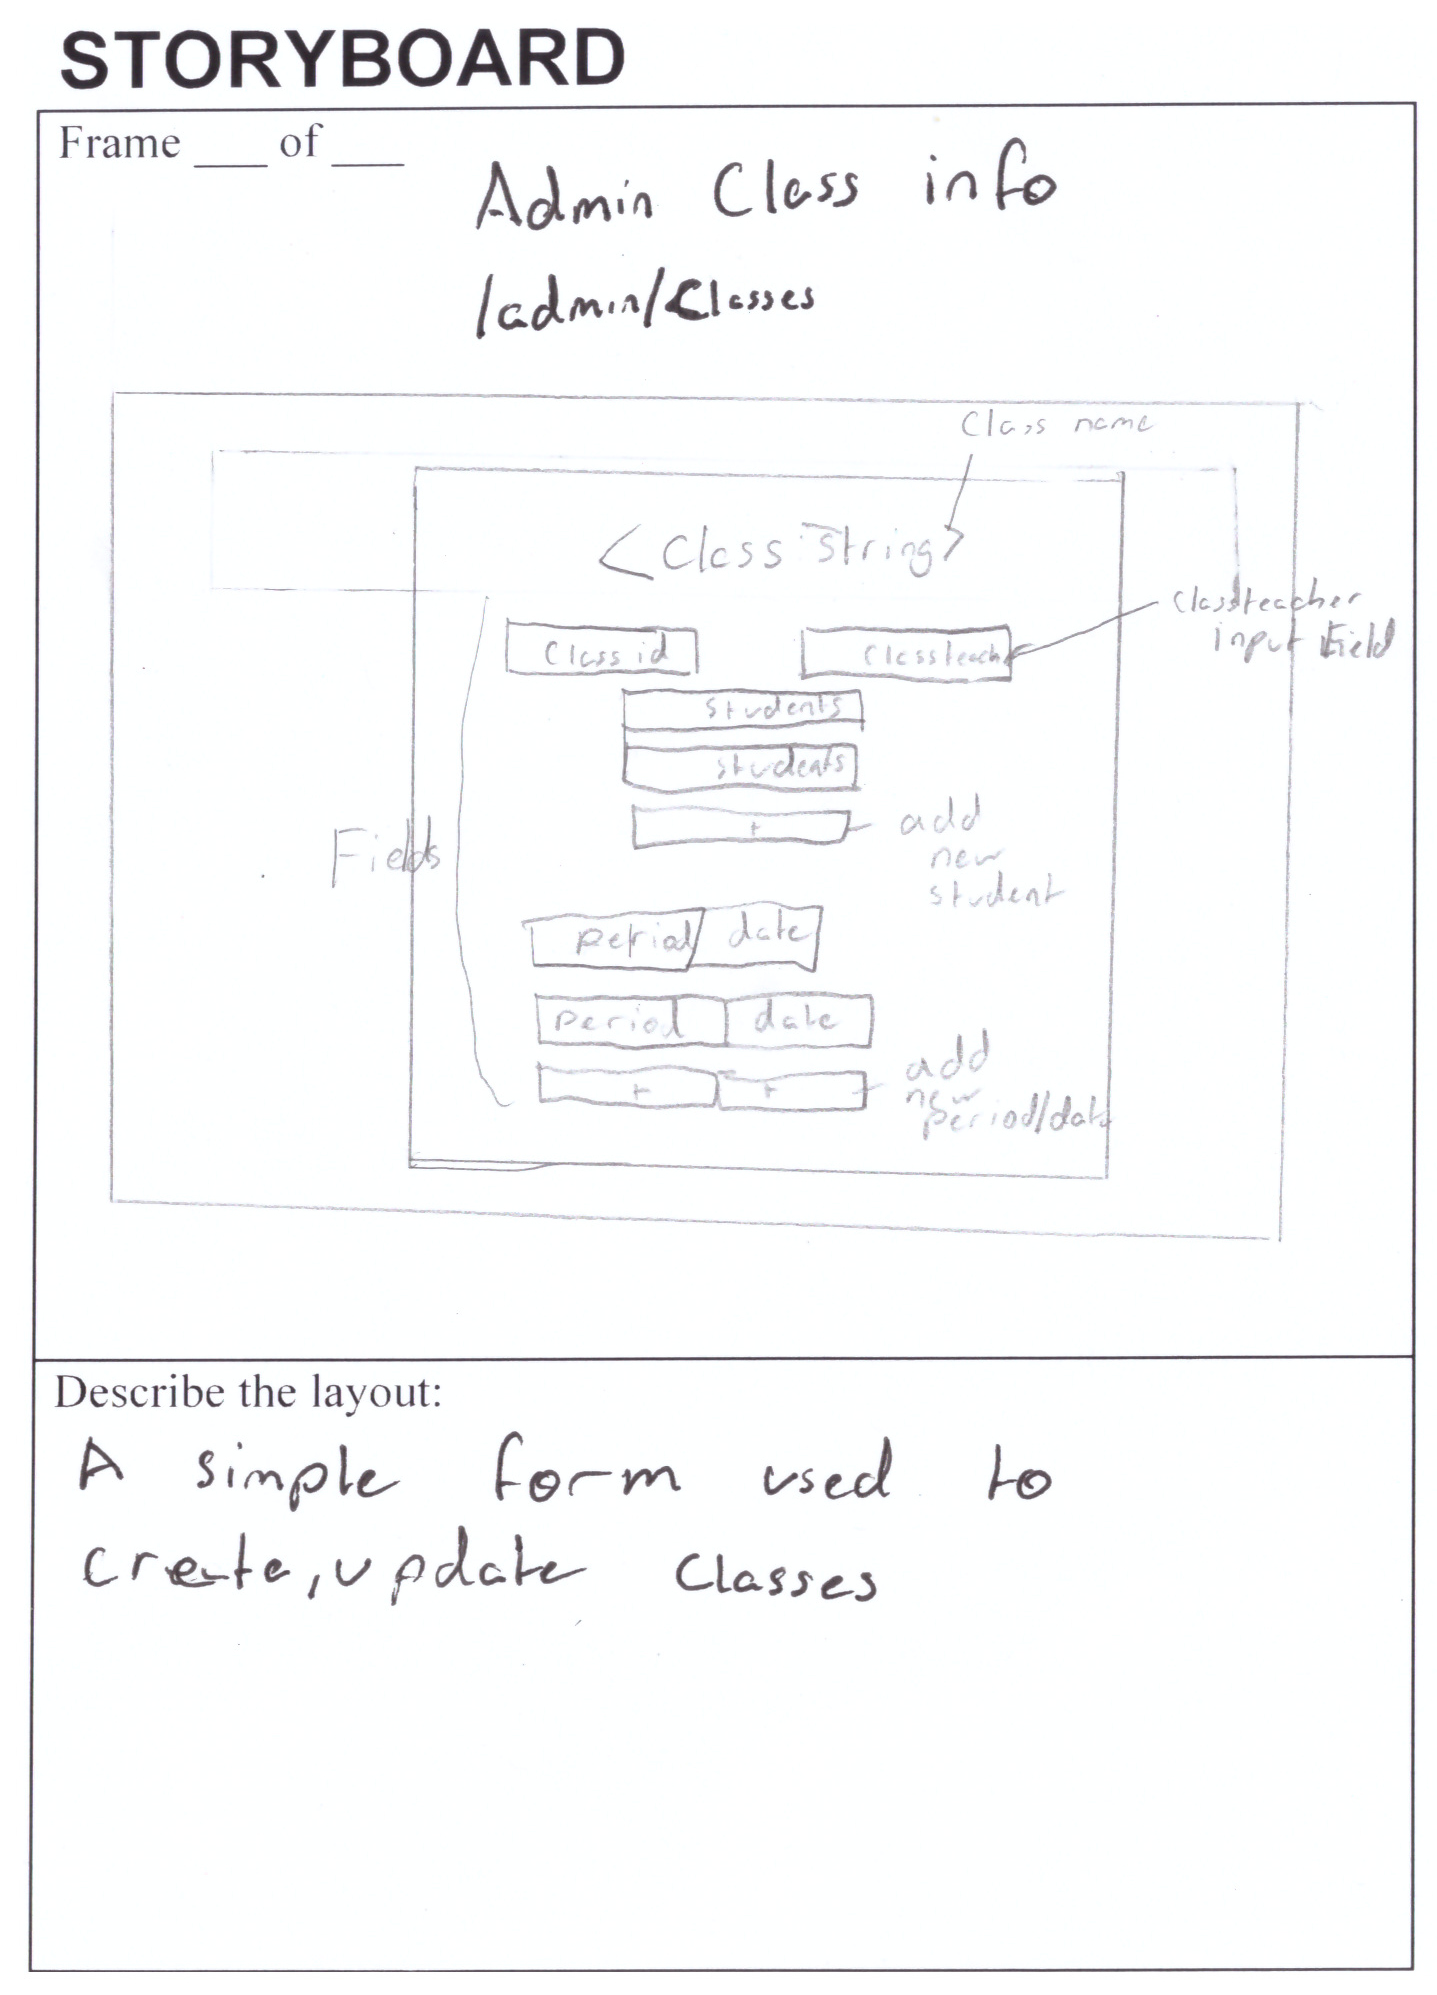 STORYBOARD
Frame ___ of ___
Admin Class info
/admin/Classes
Class name
<Class String>
Classteacher
input Field
Class id
Classteach
Students
Students
+
add
new
student
Fields
period date
period date
+ +
add
new
period/date
Describe the layout:
A simple form used to
create, update classes